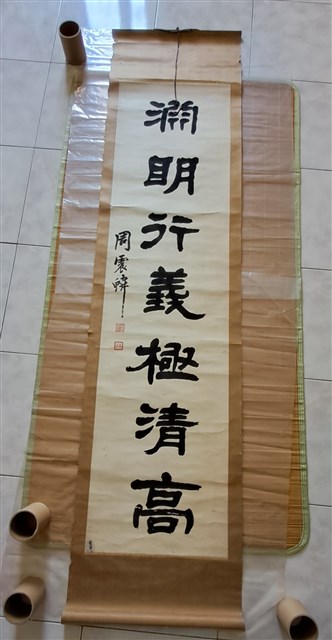 淵明行義極清高
周震